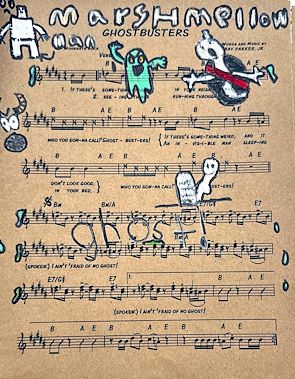 marshmellow
man
GHOSTBUSTERS
WORDS AND MUSIC BY
RAY PARKER, JR.
B A E
1. IF THERE'S SOME-THING IN YOUR NEIGH
2. SEE-ING RUN-NING THROUGH
B A E B A E
WHO YOU GON-NA CALL? GHOST-BUST-ERS! IF THERE'S SOME-THING WEIRD, AND IT
AN IN-VIS-I-BLE MAN SLEEP-ING
B A E B A E
DON'T LOOK GOOD, WHO YOU GON-NA CALL? BUST-ERS!
IN YOUR BED,
Bm Bm/A E7/G♯
ghost!
(SPOKEN:) I AIN'T 'FRAID OF NO GHOST!
E7/G♯ 1. B A E
(SPOKEN:) I AIN'T 'FRAID OF NO GHOST!
B A E B A E B A E B A E